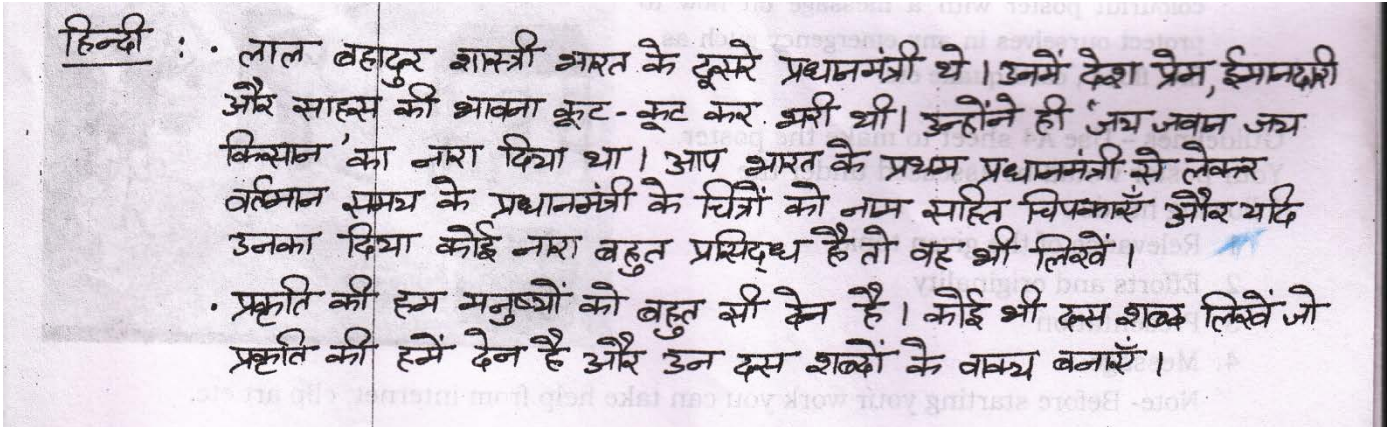 हिन्दी : • लाल बहादुर शास्त्री भारत के दूसरे प्रधानमंत्री थे। उनमें देश प्रेम, ईमानदारी
और साहस की भावना कूट-कूट कर भरी थी। उन्होंने ही 'जय जवान जय
किसान' का नारा दिया था। आप भारत के प्रथम प्रधानमंत्री से लेकर
वर्तमान समय के प्रधानमंत्री के चित्रों को नाम सहित चिपकाएँ और यदि
उनका दिया कोई नारा बहुत प्रसिद्ध है तो वह भी लिखें।
• प्रकृति की हम मनुष्यों को बहुत सी देन है। कोई भी दस शब्द लिखें जो
प्रकृति की हमें देन है और उन दस शब्दों के वाक्य बनाएँ।